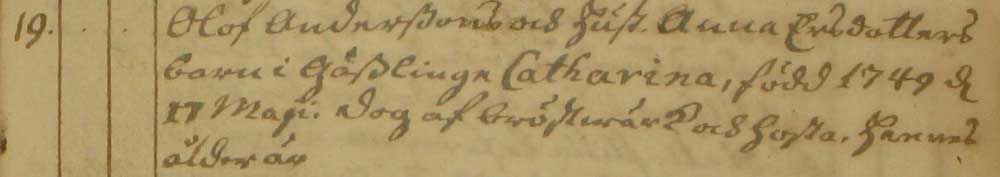 19. Olof Anderßons och Hust. Anna Ersdotters
barn i Gößlinge Catharina, född 1749 d
17 Maji. dog af bröstwärk och hosta. Hennes
ålder är